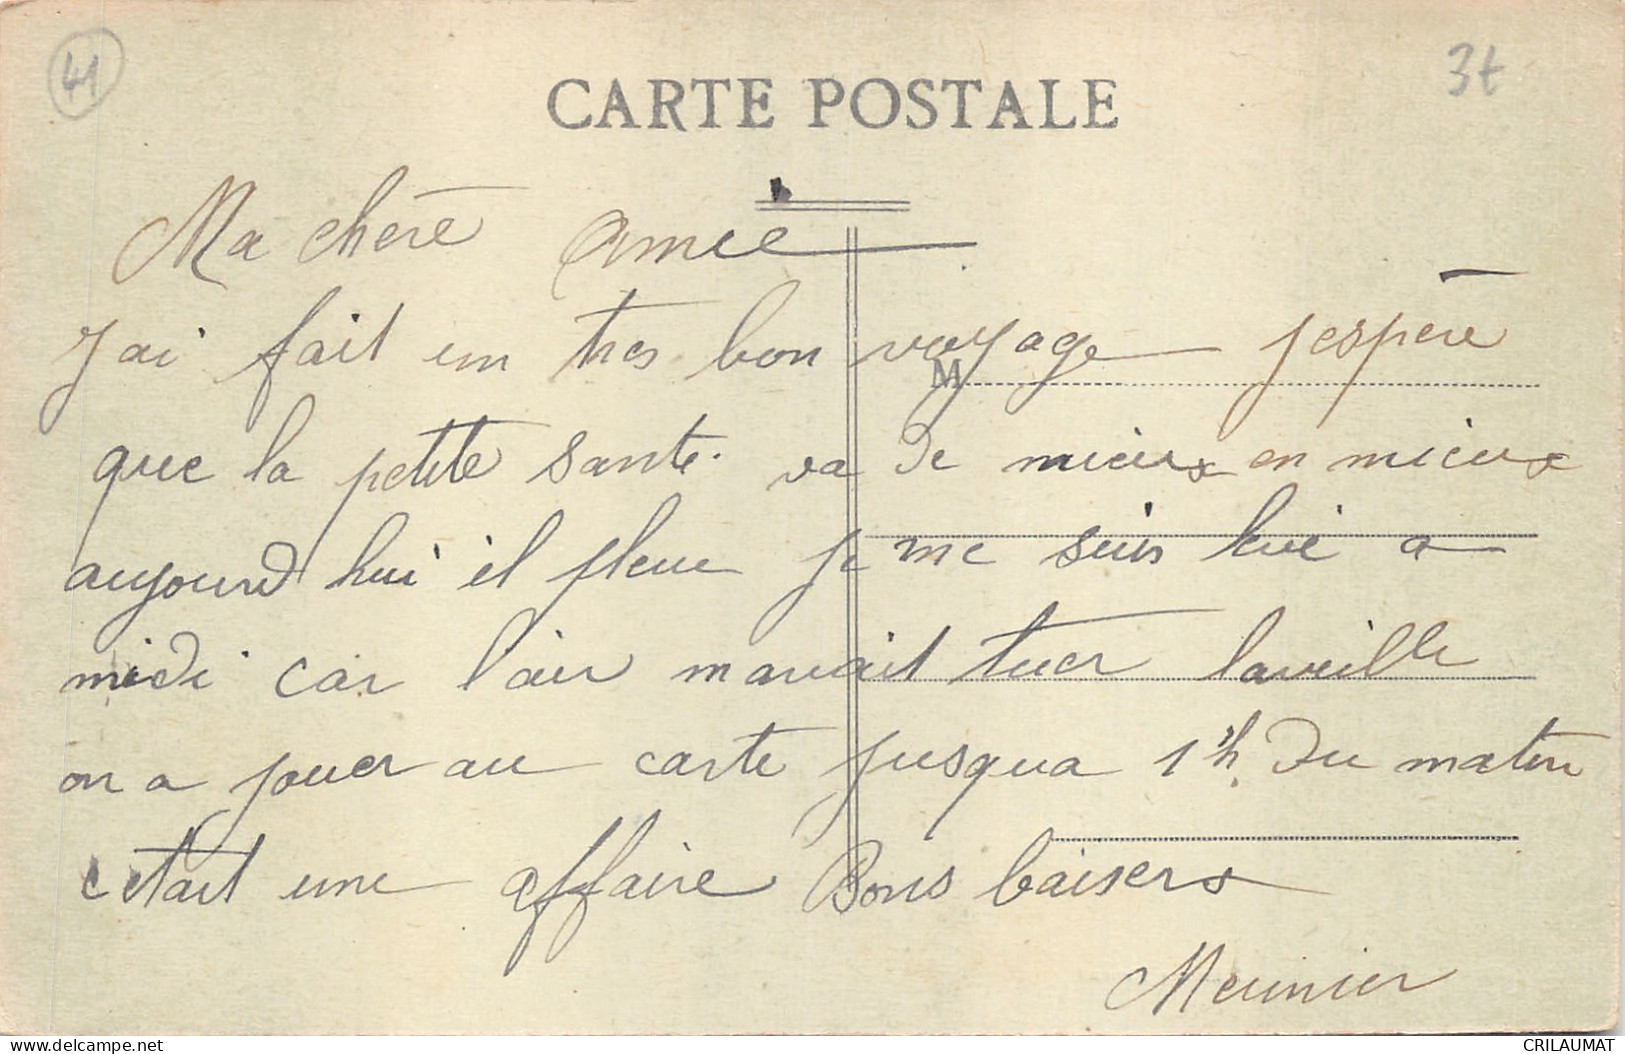 41
3t
CARTE POSTALE
Ma chère Amie
J'ai fait un tres bon voyage j'espère
M
que la petite santé va de mieux en mieux
aujourd hui il pleut je me suis levé a
midi car l'air mavait tuer laveille
on a jouer au carte jusqua 1h. du matin
cetait une affaire Bons baisers
Meunier
www.delcampe.net
CRILAUMAT